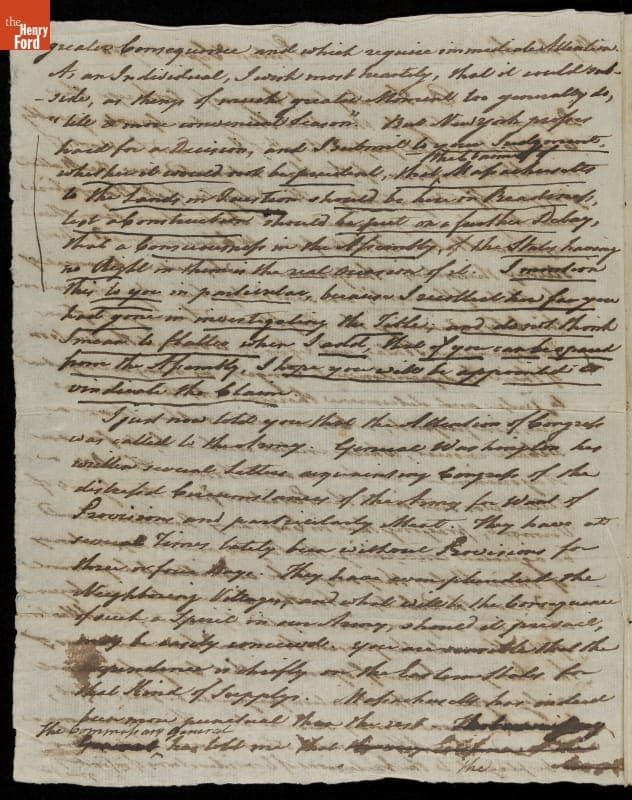 the
Henry
Ford
greater Consequence and which require immediate Attention.
As an Individual, I wish most heartily, that it could sub-
-side, as things of much greater Moment too generally do,
"till a more convenient Season". But New York presses
hard for a Decision, and I submit to your Judgment,
whether it would not be prudent, that Massachusetts
the Claim of
to the Lands in Question should be had in Readiness,
lest a Construction should be put on a further Delay,
that a Consciousness in the Assembly, of the State having
no Right in them is the real occasion of it. I mention
this to you in particular, because I recollect how far you
had gone in investigating the Title, and do not think
I mean to flatter when I add, that if you can be spared
from the Assembly, I hope you will be appointed to
vindicate the Claim
I just now told you that the Attention of Congress
was called to the Army. General Washington has
written several Letters acquainting Congress of the
distressd Circumstances of the Army for Want of
Provisions and particularly Meat. They have at
several Times lately been without Provisions for
three or four Days. They have even plunderd the
Neighboring Villages, and what will be the Consequence
of such a Spirit in our Army, should it prevail,
may be easily conceivd. you are sensible that the
Dependence is chiefly on the Eastern States for
that Kind of Supplys. Massachusetts has indeed
been more punctual than the rest.
The Commissary General
has told me that
the